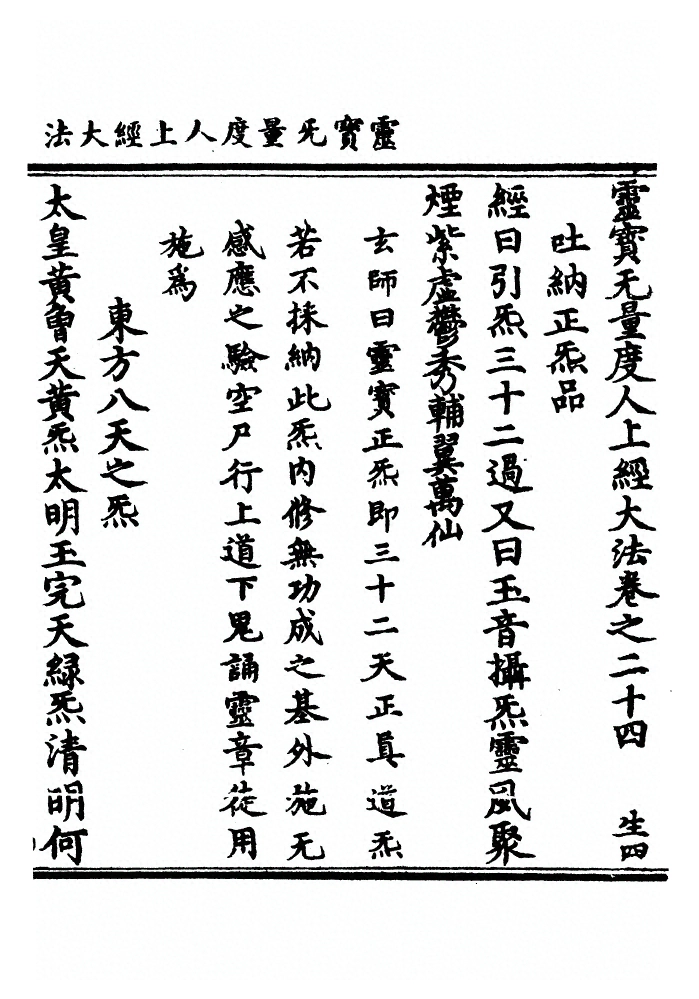 靈寳旡量度人上經大法
靈寳无量度人上經大法卷之二十四　生四
吐納正炁品
經曰引炁三十二過又曰玉音攝炁靈風聚
煙紫虛欝秀輔翼萬仙
玄師曰靈寳正炁即三十二天正真道炁
若不採納此炁内修無功成之基外施无
感應之驗空尸行上道下鬼誦靈章徒用
施爲
東方八天之炁
太皇黄曾天黄炁太明玉完天緑炁清明何